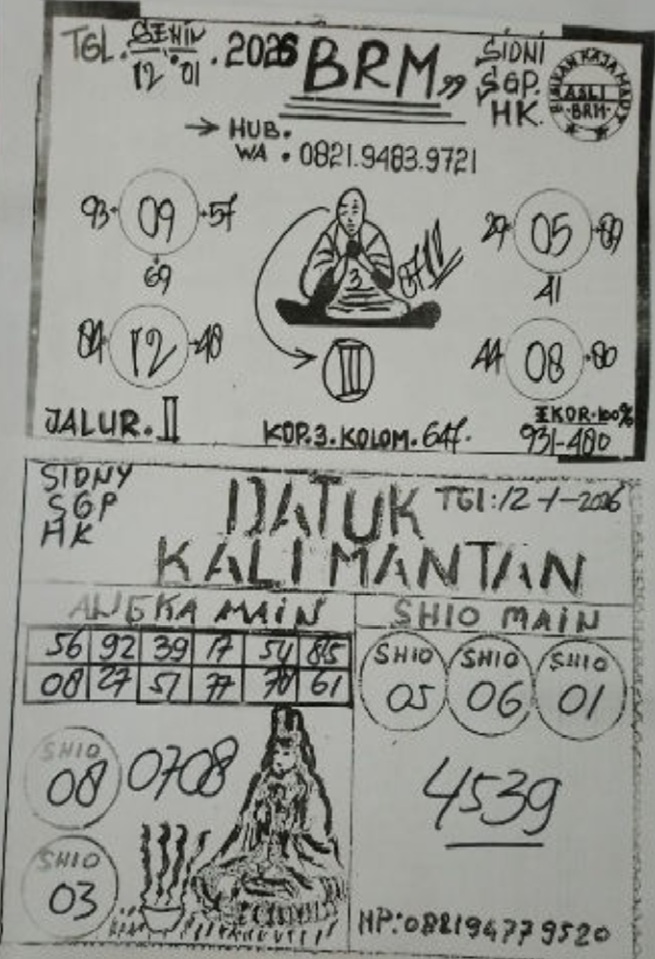 TGL. SENIN 12.01.2026 BRM,, SIDNI
SGP.
HK.
ASLI
BRM
→ HUB.
WA. 0821.9483.9721
93 09 57
69
05
41
3
12 48
44 08 80
III
JALUR. II
KOP.3.KOLOM.647.
EKOR.100%
931-480
SIDNY
SGP
HK
DATUK
TGl:12-1-2026
KALIMANTAN
ANGKA MAIN
SHIO MAIN
56 92 39 17 54 85
08 27 51 77 70 61
SHIO 05
SHIO 06
SHIO 01
SHIO 08
0708
4539
SHIO 03
HP:088194779520